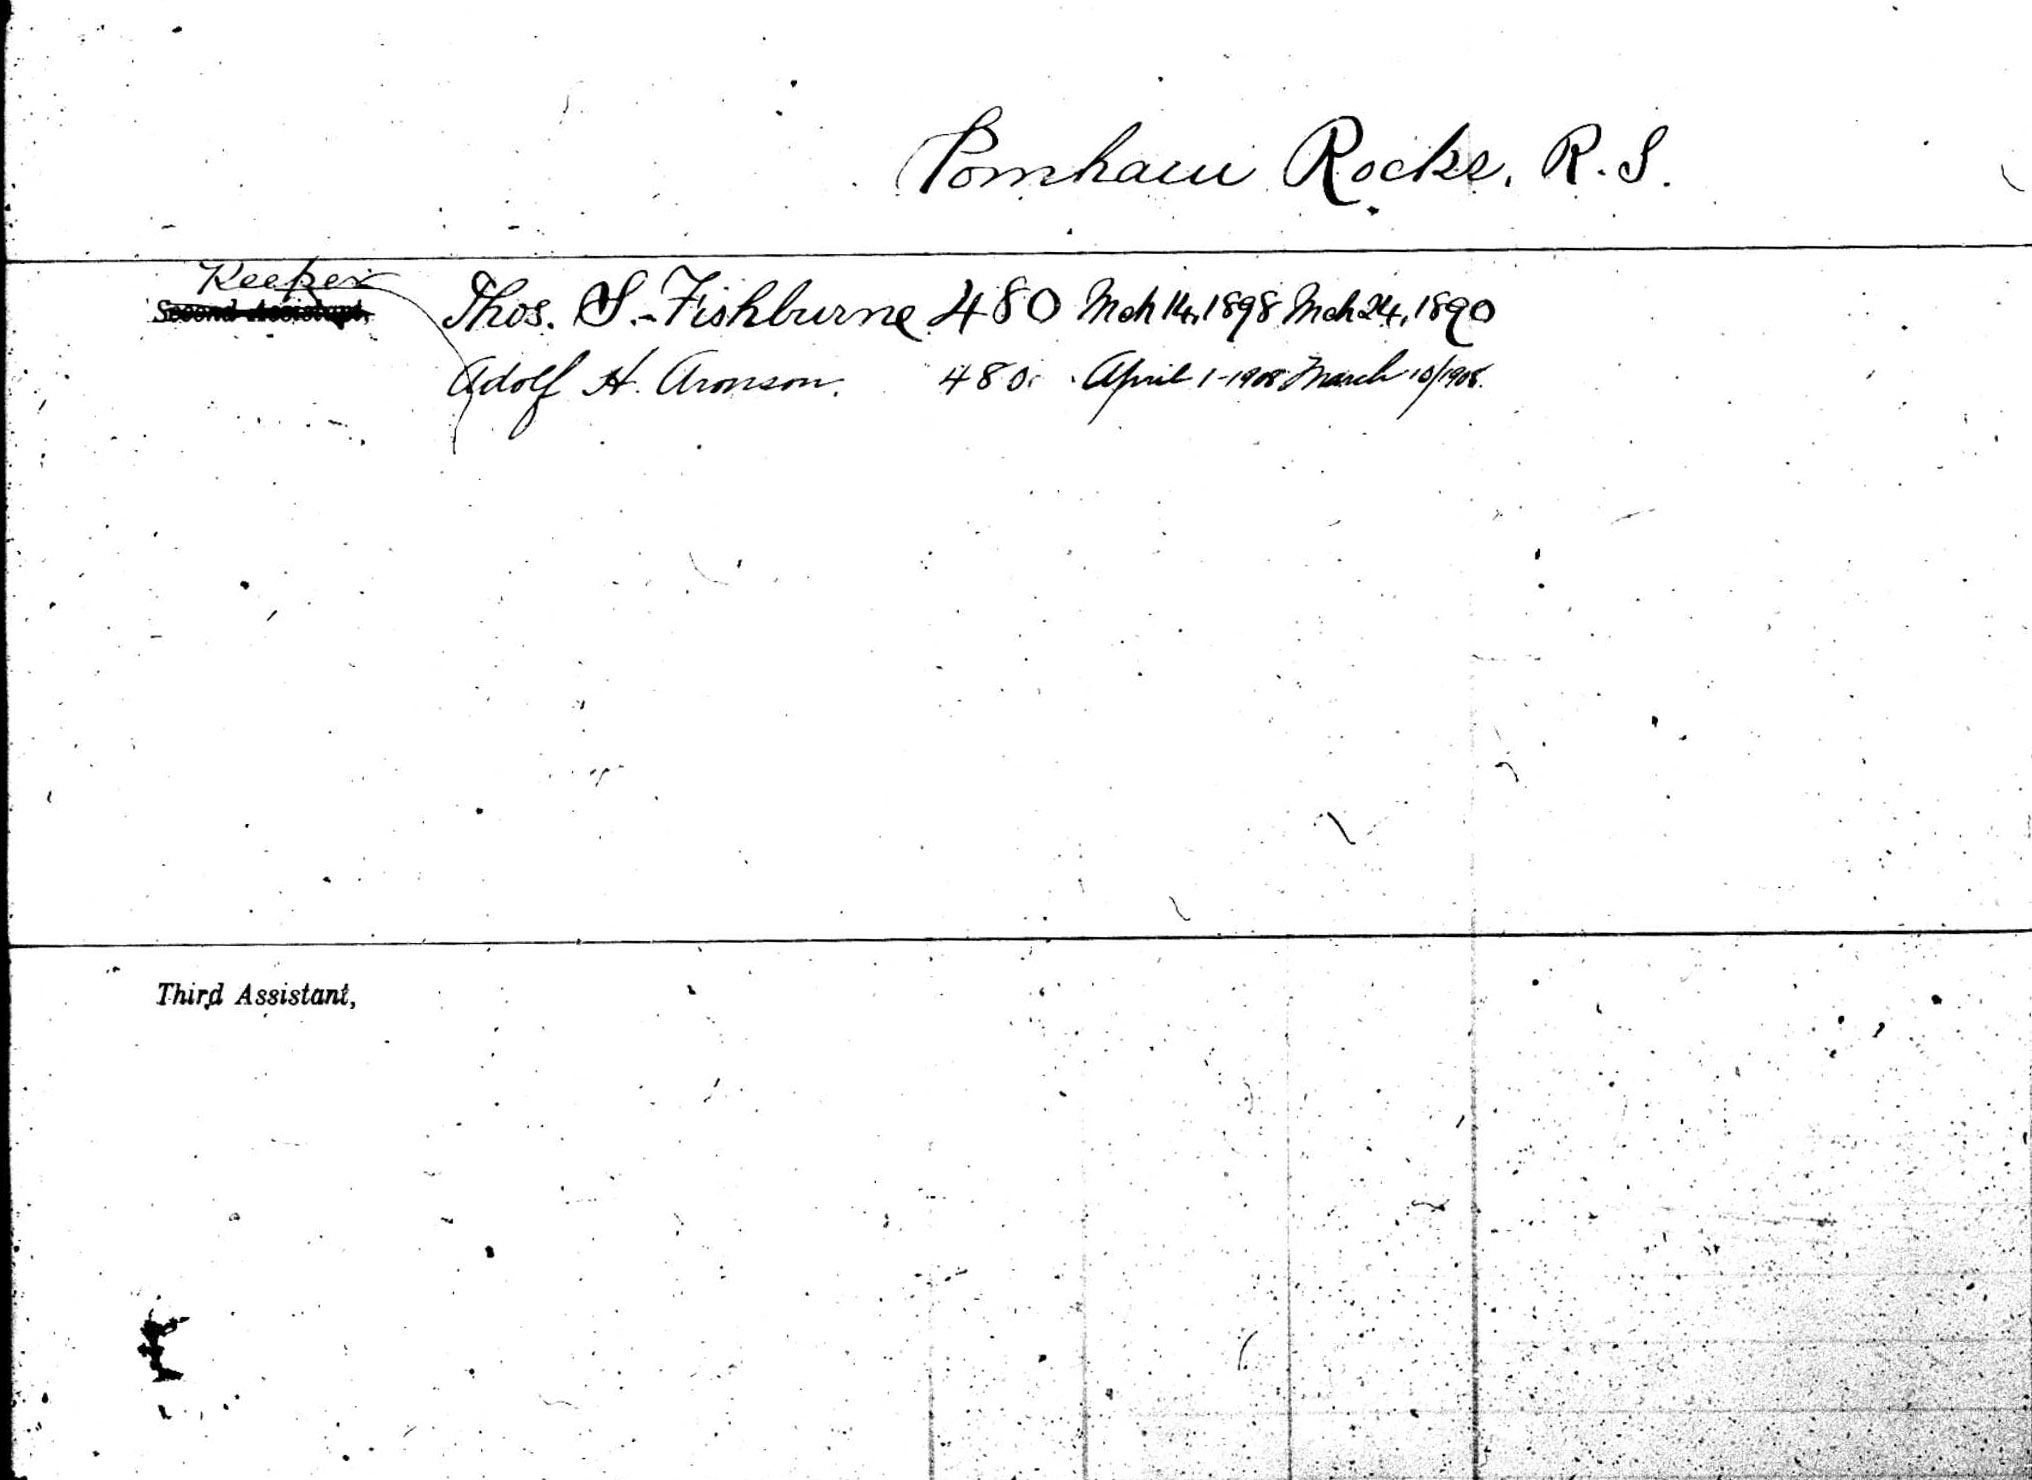 Pomham Rocks, R. I.
Keeper
Second Assistant,
Thos. S. Fishburne 480 Mch 14, 1898 Mch 24, 1890
Adolf H. Aronson. 480 April 1-1908 March 10/1908.
Third Assistant,